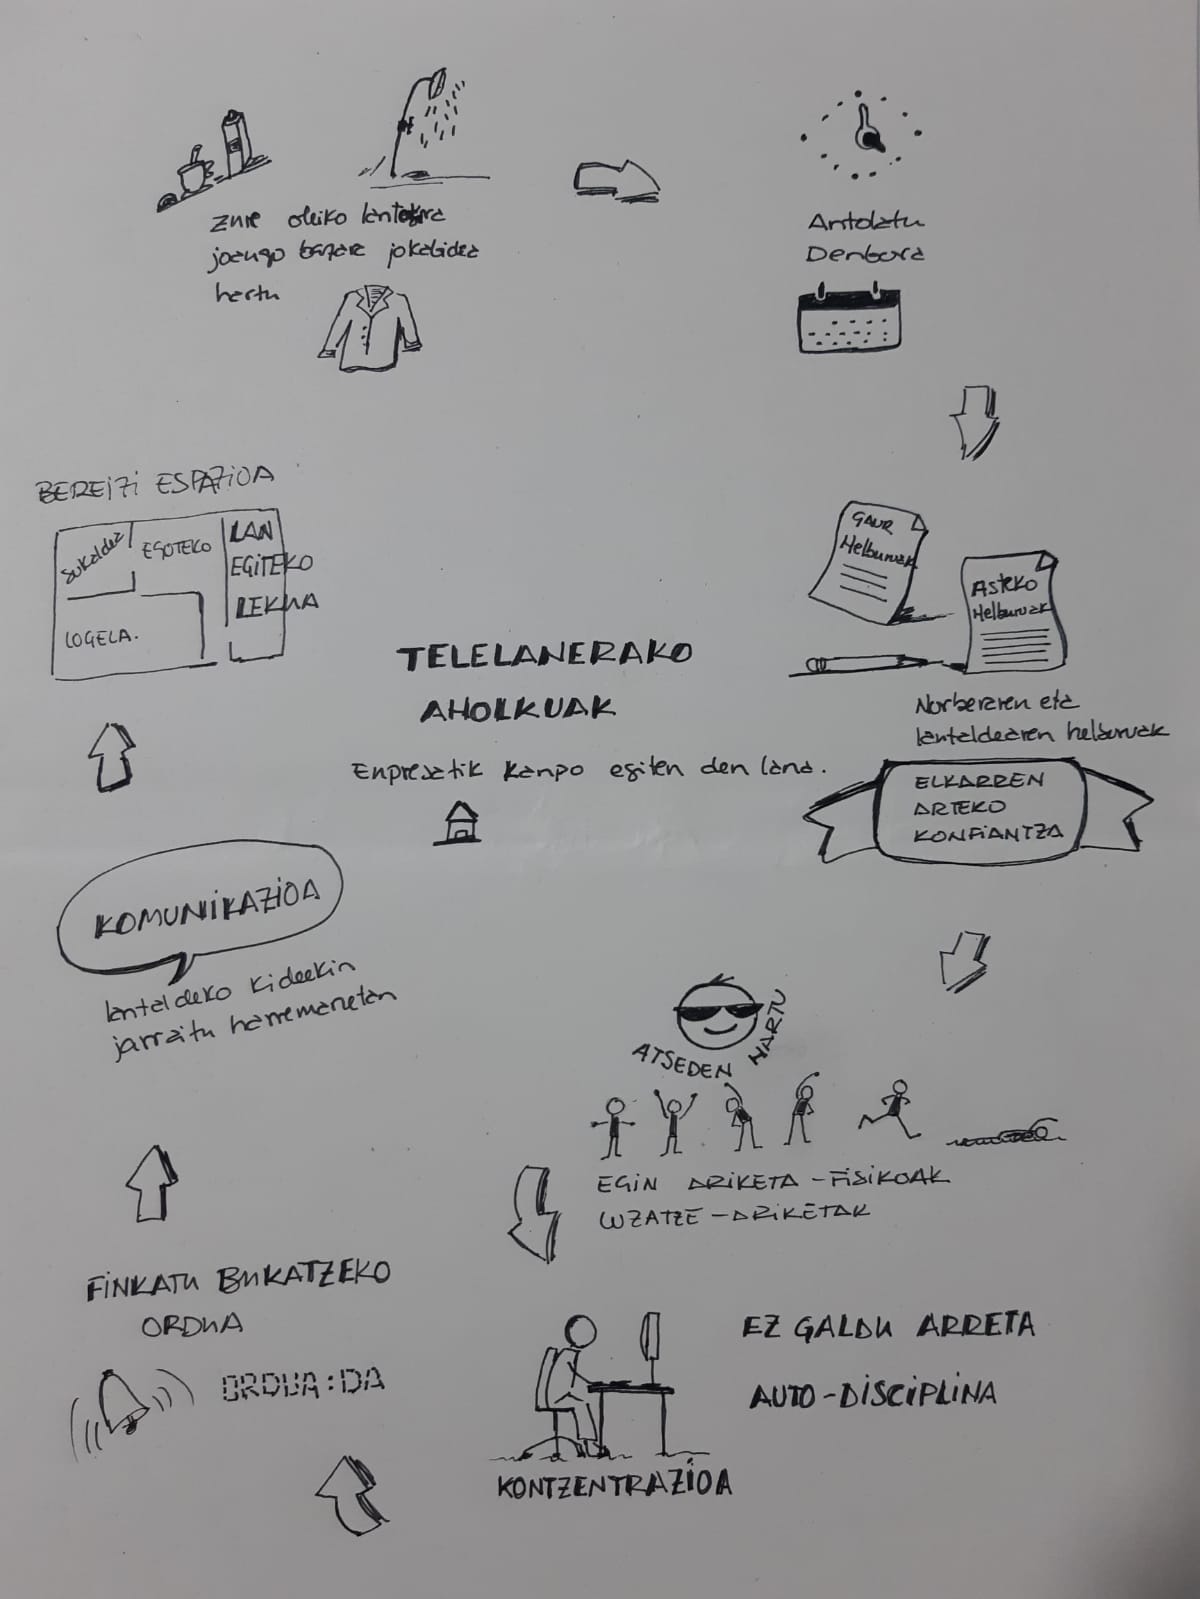 zure ohiko lantokira
joango bazare jokabidea
hartu
Antolatu
Denbora
GAUR
Helburuak
ASteko
Helburuak
Norberaren eta
lantaldearen helburuak
ELKARREN
ARTEKO
KONFiANTZA
ATSEDEN HARTU
EGiN ARiKETA-FiSiKOAK
LUZATZE-ARiKETAK
EZ GALDU ARRETA
AUTO-DiSCiPLiNA
KONTZENTRAZiOA
FiNKATU BUKATZEKO
ORDUA
ORDUA:DA
KOMUNiKAZiOA
lantaldeko kideekin
jarraitu harremanetan
BEREiZi ESPAZiOA
Sukaldea
EGOTEKO
LAN
EGiTEKO
LEKUA
LOGELA.
TELELANERAKO
AHOLKUAK
Enpresatik kanpo egiten den lana.